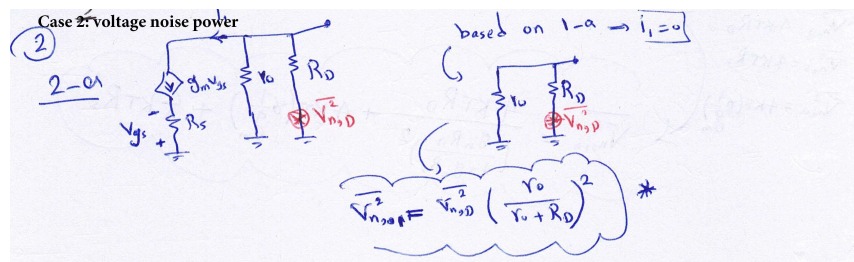 Case 2: voltage noise power
② 2-a
g_m v_gs
r_o
R_D
V_gs
- +
R_s
\overline{V_{n,D}^2}
based on 1-a → i_1 = 0
r_o
R_D
\overline{V_{n,D}^2}
\overline{V_{n,out}^2} = \overline{V_{n,D}^2} (r_o / (r_o + R_D))^2 *